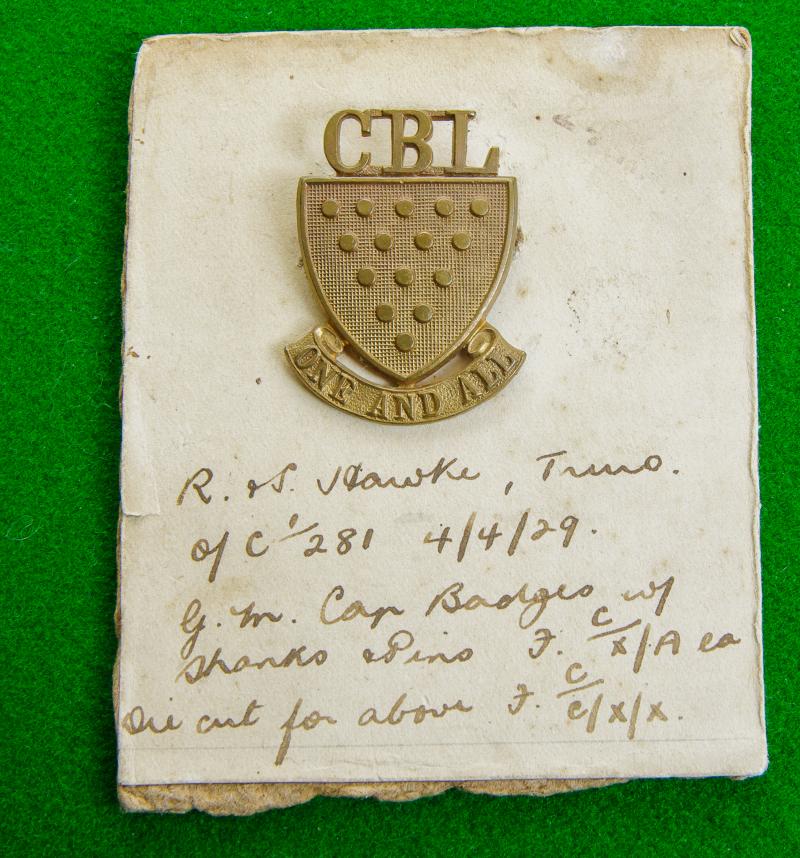 CBL
ONE AND ALL
R. & S. Hawke, Truro.
O/C 1/281 4/4/29.
G.M. Cap Badges w/
Shanks & Pins F. C/X/A ea
Die cut for above F. C/C/X/X.